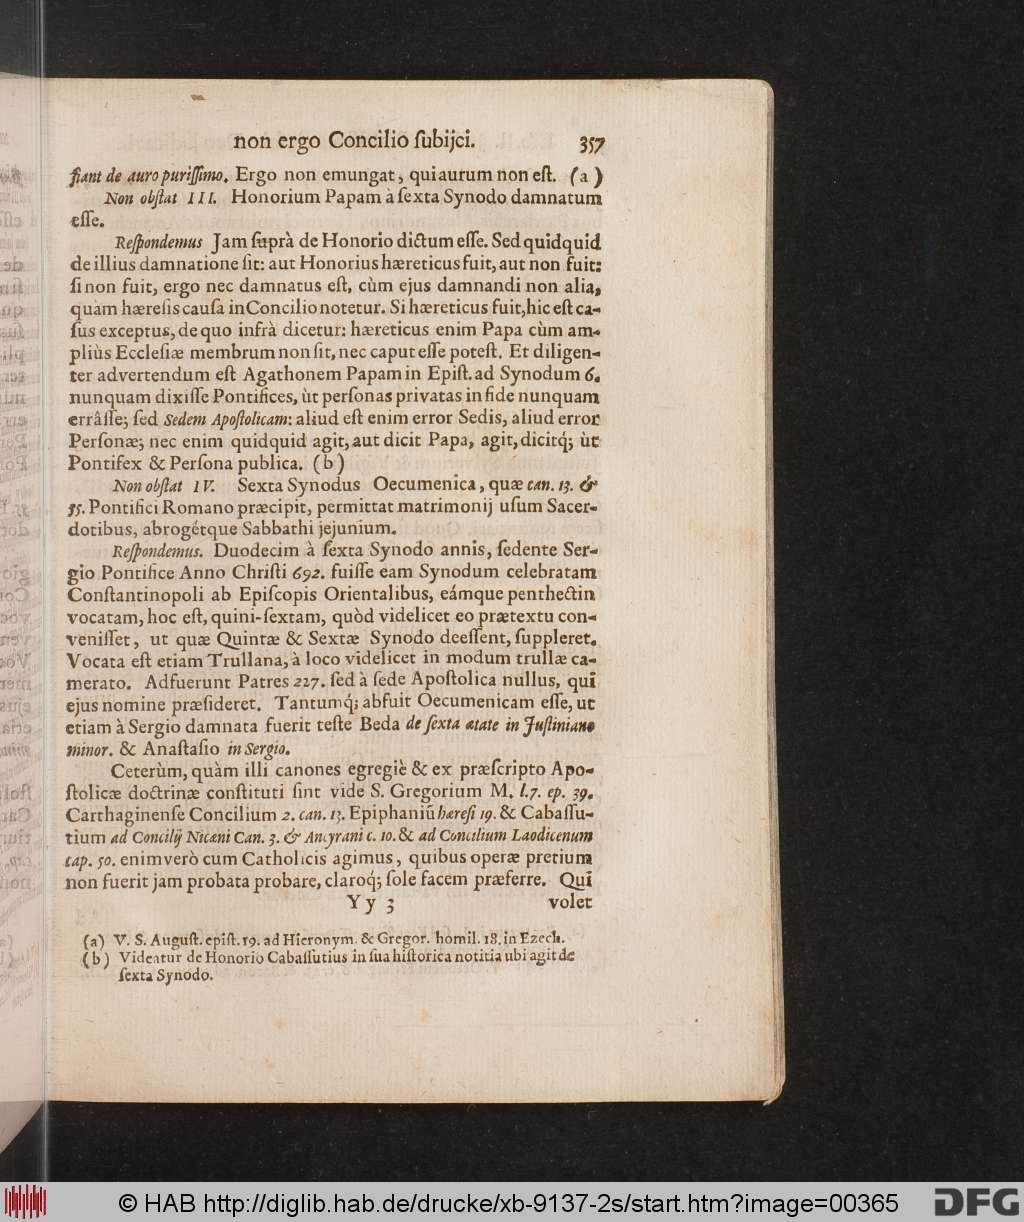 non ergo Concilio ſubijci. 357
fiant de auro puriſſimo. Ergo non emungat, quia aurum non eſt. (a)
Non obſtat III. Honorium Papam à ſexta Synodo damnatum
eſſe.
Reſpondemus Jam ſuprà de Honorio dictum eſſe. Sed quidquid
de illius damnatione ſit: aut Honorius hæreticus fuit, aut non fuit:
ſi non fuit, ergo nec damnatus eſt, cùm ejus damnandi non alia,
quàm hæreſis cauſa in Concilio notetur. Si hæreticus fuit, hic eſt ca-
ſus exceptus, de quo infrà dicetur: hæreticus enim Papa cùm am-
pliùs Eccleſiæ membrum non ſit, nec caput eſſe poteſt. Et diligen-
ter advertendum eſt Agathonem Papam in Epiſt. ad Synodum 6.
nunquam dixiſſe Pontifices, ùt perſonas privatas in fide nunquam
errâſſe; ſed Sedem Apoſtolicam: aliud eſt enim error Sedis, aliud error
Perſonæ; nec enim quidquid agit, aut dicit Papa, agit, dicitq́; ùt
Pontifex & Perſona publica. (b)
Non obſtat IV. Sexta Synodus Oecumenica, quæ can. 13. &
55. Pontifici Romano præcipit, permittat matrimonij uſum Sacer-
dotibus, abrogétque Sabbathi jejunium.
Reſpondemus. Duodecim à ſexta Synodo annis, ſedente Ser-
gio Pontifice Anno Chriſti 692. fuiſſe eam Synodum celebratam
Conſtantinopoli ab Epiſcopis Orientalibus, eámque penthectin
vocatam, hoc eſt, quini-ſextam, quòd videlicet eo prætextu con-
veniſſet, ut quæ Quintæ & Sextæ Synodo deeſſent, ſuppleret.
Vocata eſt etiam Trullana, à loco videlicet in modum trullæ ca-
merato. Adfuerunt Patres 227. ſed à ſede Apoſtolica nullus, quî
ejus nomine præſideret. Tantumq́; abfuit Oecumenicam eſſe, ut
etiam à Sergio damnata fuerit teſte Beda de ſexta ætate in Juſtiniano
minor. & Anaſtaſio in Sergio.
Ceterùm, quàm illi canones egregiè & ex præſcripto Apo-
ſtolicæ doctrinæ conſtituti ſint vide S. Gregorium M. l. 7. ep. 39.
Carthaginenſe Concilium 2. can. 13. Epiphaniũ hæreſi 19. & Cabaſſu-
tium ad Concilij Nicæni Can. 3. & Ancyrani c. 10. & ad Concilium Laodicenum
cap. 50. enimverò cum Catholicis agimus, quibus operæ pretium
non fuerit jam probata probare, claroq́; ſole facem præferre. Quî
Yy 3 volet
(a) V. S. Auguſt. epiſt. 19. ad Hieronym. & Gregor. homil. 18. in Ezech.
(b) Videatur de Honorio Cabaſſutius in ſua hiſtorica notitia ubi agit de
ſexta Synodo.
© HAB http://diglib.hab.de/drucke/xb-9137-2s/start.htm?image=00365
DFG